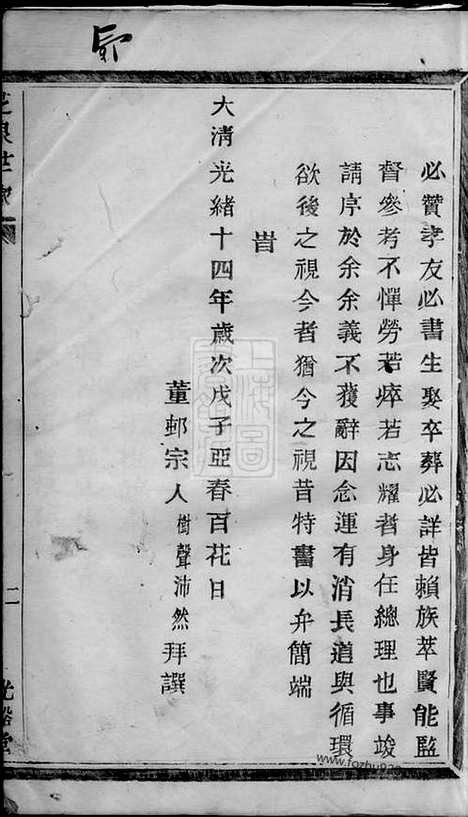 必贊孝友必書生娶卒葬必詳皆賴族萃賢能監
督參考不憚勞若瘁若志耀者身任總理也事竣
請序於余余義不獲辭因念運有消長道與循環
欲後之視今者猶今之視昔特書以弁簡端
旹
大清光緒十四年歲次戊子亞春百花日
董邨宗人樹聲沛然拜譔
二
光裕堂
www.fozhu920.com